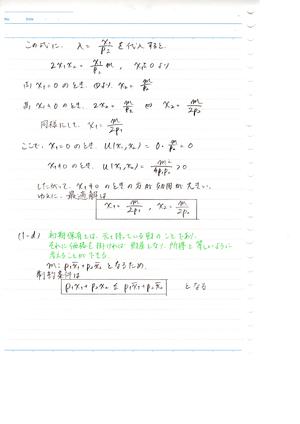 この式に、λ = x₁/p₂ を代入すると、
2x₁x₂ = x₁/p₂ m, x₁≧0より
(i) x₁=0のとき (1)より x₂ = m/p₂
(ii) x₁≠0のとき、2x₂ = m/p₂ ⇔ x₂ = m/2p₂
同様にして、x₁ = m/2p₁
ここで、x₁=0のとき、u(x₁,x₂) = 0・m/p₂ = 0
x₁≠0のとき、u(x₁,x₂) = m²/4p₁p₂ > 0
したがって、x₁≠0のときの方が効用が大きい。
ゆえに、最適解は
x₁ = m/2p₁ , x₂ = m/2p₂
(1-d) 初期保有とは、元々持っている財のことであり、
それに価格を掛ければ、財産となり、所得と等しいように
考えることができる。
m = p₁x̄₁+p₂x̄₂ となるため、
制約条件は
p₁x₁+p₂x₂ ≦ p₁x̄₁+p₂x̄₂ となる